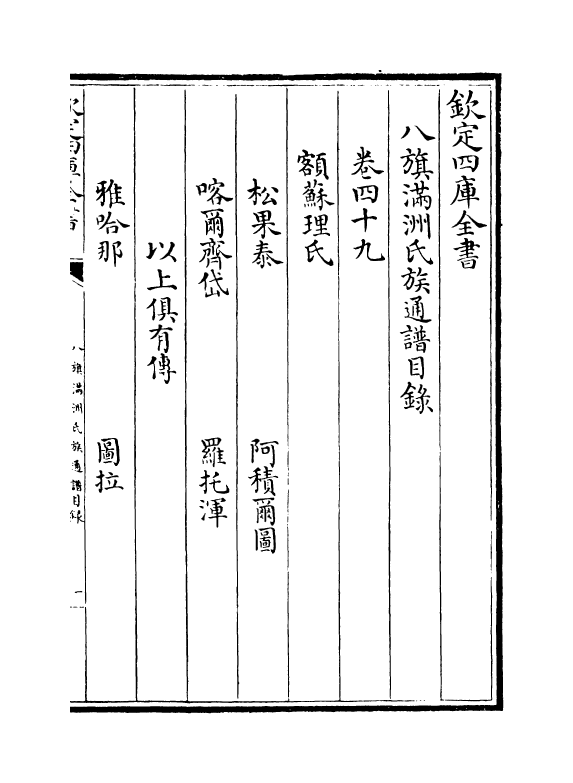 欽定四庫全書
八旗滿洲氏族通譜目錄
卷四十九
額蘇理氏
松果泰 阿積爾圖
喀爾齊岱 羅托渾
以上俱有傳
雅哈那 圖拉
欽定四庫全書 八旗滿洲氏族通譜目錄 一